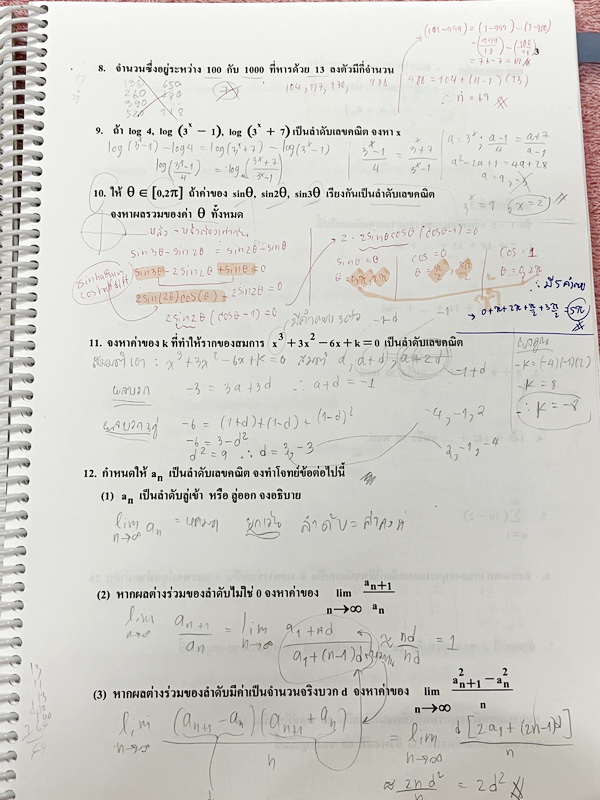 (101-999) = (1-999) - (1-100)
3
8. จำนวนซึ่งอยู่ระหว่าง 100 กับ 1000 ที่หารด้วย 13 ลงตัวมีกี่จำนวน
130 650
260 780
390
520
104, 117, 130, 988
988 = 104 + (n-1)(13)
∴ n = 69
9. ถ้า log 4, log (3^x − 1), log (3^x + 7) เป็นลำดับเลขคณิต จงหา x
log(3^x-1) - log 4 = log(3^x+7) - log(3^x-1)
log(3^x-1 / 4) = log(3^x+7 / 3^x-1)
3^x-1 / 4 = 3^x+7 / 3^x-1
a = 3^x; a-1 / 4 = a+7 / a-1
a² - 2a + 1 = 4a + 28
a = 9, -3
3^x = 9 ; x = 2
10. ให้ θ ∈ [0,2π] ถ้าค่าของ sinθ, sin2θ, sin3θ เรียงกันเป็นลำดับเลขคณิต
จงหาผลรวมของค่า θ ทั้งหมด
sin3θ - sin2θ = sin2θ - sinθ
sin3θ - 2sin2θ + sinθ = 0
2sin(2θ)cos(θ) - 2sin2θ = 0
2sin2θ (cosθ - 1) = 0
2 · 2sinθcosθ (cosθ-1) = 0
sin = 0
θ = 0, π, 2π
cos = 0
θ = π/2, 3π/2
cos = 1
θ = 0, 2π
∴ มี 5 คำตอบ
0 + π + 2π + π/2 + 3π/2 = 5π
11. จงหาค่าของ k ที่ทำให้รากของสมการ x³ + 3x² − 6x + k = 0 เป็นลำดับเลขคณิต
x³ + 3x² - 6x + k = 0 สมมติ a, a+d, a+2d
-1+d
ผลบวก -3 = 3a + 3d ∴ a+d = -1
-6 = (1+d) + (1-d) + (1-d)²
-6 = 3 - d²
d² = 9 ∴ d = 3, -3
-4, -1, 2
2, -1, -4
ผลคูณ
-k = (-4)(-1)(2)
-k = 8
∴ k = -8
12. กำหนดให้ aₙ เป็นลำดับเลขคณิต จงทำโจทย์ข้อต่อไปนี้
(1) aₙ เป็นลำดับลู่เข้า หรือ ลู่ออก จงอธิบาย
lim n→∞ aₙ = ยกเว้น ลำดับ = ค่าคงที่
(2) หากผลต่างร่วมของลำดับไม่ใช่ 0 จงหาค่าของ lim n→∞ aₙ₊₁ / aₙ
lim n→∞ aₙ₊₁ / aₙ = lim n→∞ a₁+nd / a₁+(n-1)d ≈ nd / nd = 1
(3) หากผลต่างร่วมของลำดับมีค่าเป็นจำนวนจริงบวก d จงหาค่าของ lim n→∞ a²ₙ₊₁ − a²ₙ / n
lim n→∞ (aₙ₊₁ - aₙ)(aₙ₊₁ + aₙ) / n = lim n→∞ d[2a₁ + (2n-1)d] / n
≈ 2nd² / n = 2d²